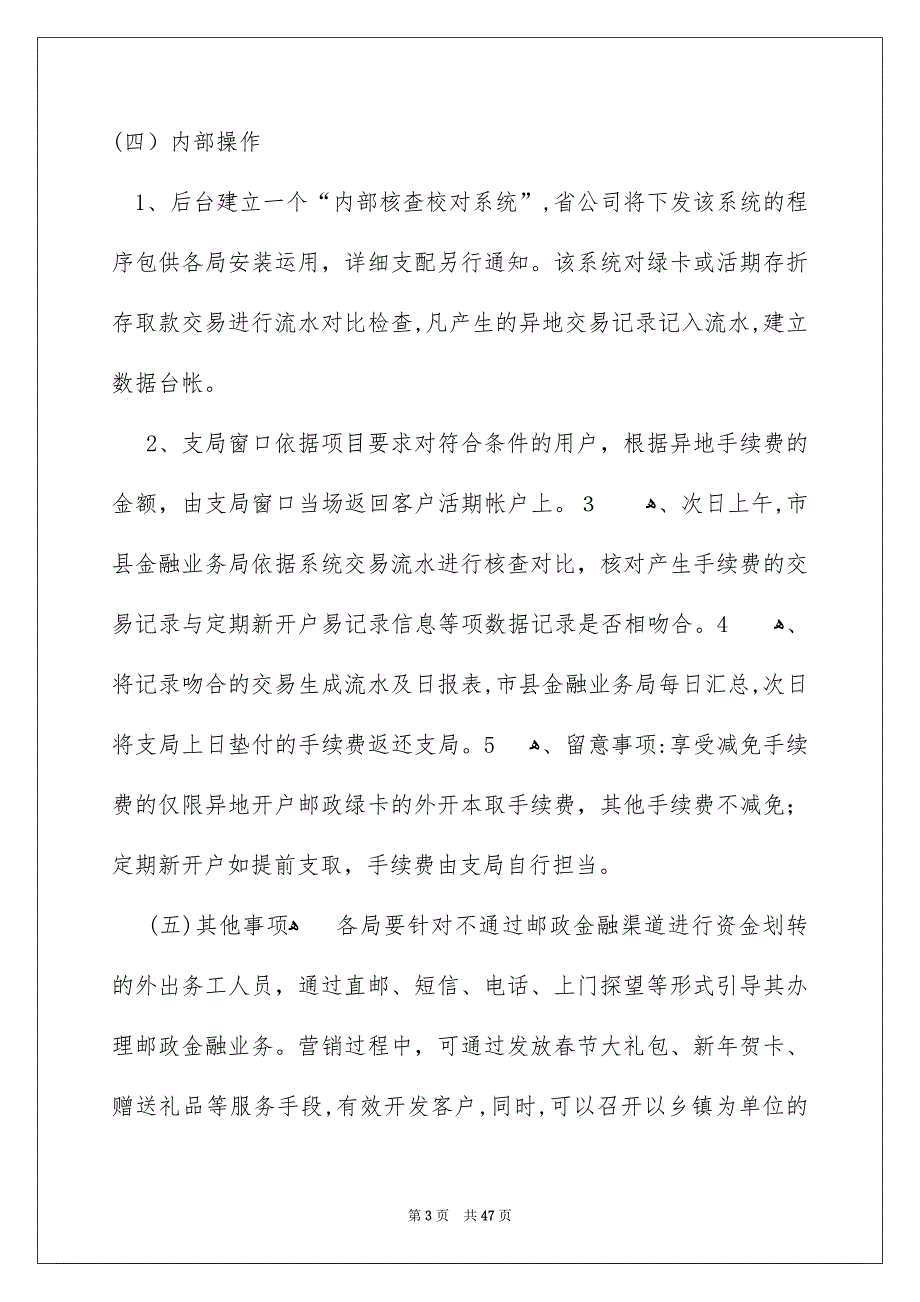 (四）内部操作
1、后台建立一个“内部核查校对系统”,省公司将下发该系统的程
序包供各局安装运用，详细支配另行通知。该系统对绿卡或活期存折
存取款交易进行流水对比检查,凡产生的异地交易记录记入流水,建立
数据台帐。
2、支局窗口依据项目要求对符合条件的用户，根据异地手续费的
金额，由支局窗口当场返回客户活期帐户上。3 ﻫ、次日上午,市
县金融业务局依据系统交易流水进行核查对比，核对产生手续费的交
易记录与定期新开户易记录信息等项数据记录是否相吻合。4 ﻫ、
将记录吻合的交易生成流水及日报表,市县金融业务局每日汇总,次日
将支局上日垫付的手续费返还支局。5 ﻫ、留意事项:享受减免手续
费的仅限异地开户邮政绿卡的外开本取手续费，其他手续费不减免；
定期新开户如提前支取，手续费由支局自行担当。
(五)其他事项ﻫ 各局要针对不通过邮政金融渠道进行资金划转
的外出务工人员，通过直邮、短信、电话、上门探望等形式引导其办
理邮政金融业务。营销过程中，可通过发放春节大礼包、新年贺卡、
赠送礼品等服务手段,有效开发客户,同时,可以召开以乡镇为单位的
第 3 页 共 47 页